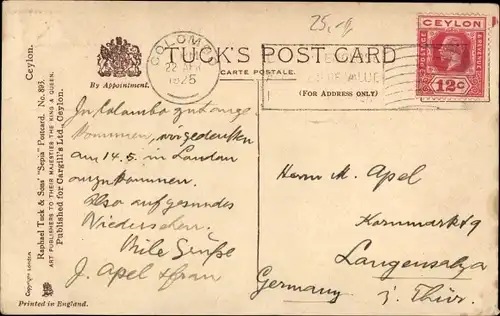 25.-
TUCK'S POST CARD
CARTE POSTALE.
(FOR ADDRESS ONLY)
By Appointment.
COLOMBO
22 APR
1925
CEYLON
POSTAGE
& REVENUE
12c
Ceylon.
Raphael Tuck & Sons' "Sepia" Postcard. No. 893.
ART PUBLISHERS TO THEIR MAJESTIES THE KING & QUEEN.
Published for Cargills Ltd., Ceylon.
Copyright London
Printed in England.
In Colombo gut ange
kommen, wir gedenken
am 14.5. in Landau
anzukommen.
Also auf gesundes
Wiedersehen.
Viele Grüße
J. Apel & Frau
Herrn M. Apel
Kornmarkt 9
Langensalza
Germany i. Thür.